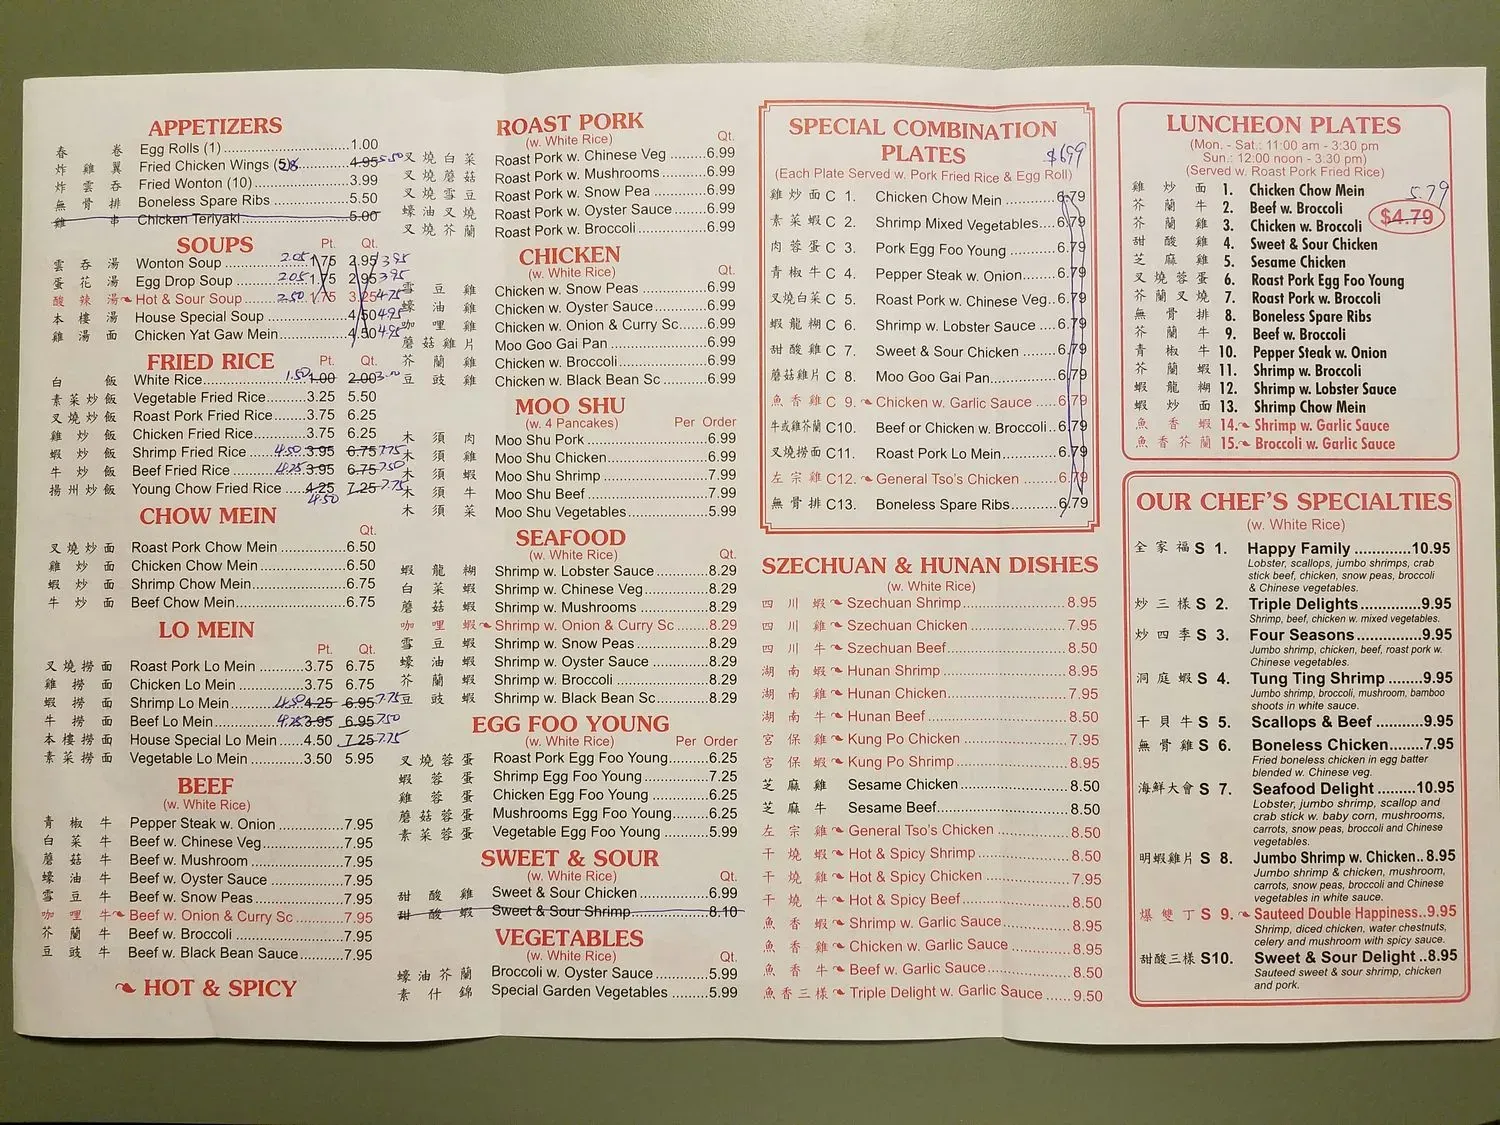 APPETIZERS
春卷 Egg Rolls (1) 1.00
炸雞翼 Fried Chicken Wings (5) 8 4.95 5.50
炸雲吞 Fried Wonton (10) 3.99
無骨排 Boneless Spare Ribs 5.50
雞串 Chicken Teriyaki 5.00
SOUPS Pt. Qt.
雲吞湯 Wonton Soup 2.05 1.75 2.95 3.95
蛋花湯 Egg Drop Soup 2.05 1.75 2.95 3.95
酸辣湯 Hot & Sour Soup 2.50 1.75 3.25 4.75
本樓湯 House Special Soup 4.50 4.95
雞湯面 Chicken Yat Gaw Mein 4.50 4.95
FRIED RICE Pt. Qt.
白飯 White Rice 1.50 1.00 2.00 3.00
素菜炒飯 Vegetable Fried Rice 3.25 5.50
叉燒炒飯 Roast Pork Fried Rice 3.75 6.25
雞炒飯 Chicken Fried Rice 3.75 6.25
蝦炒飯 Shrimp Fried Rice 4.50 3.95 6.75 7.75
牛炒飯 Beef Fried Rice 4.25 3.95 6.75 7.50
揚州炒飯 Young Chow Fried Rice 4.25 7.25 7.75
4.50
CHOW MEIN
Qt.
叉燒炒面 Roast Pork Chow Mein 6.50
雞炒面 Chicken Chow Mein 6.50
蝦炒面 Shrimp Chow Mein 6.75
牛炒面 Beef Chow Mein 6.75
LO MEIN
Pt. Qt.
叉燒撈面 Roast Pork Lo Mein 3.75 6.75
雞撈面 Chicken Lo Mein 3.75 6.75
蝦撈面 Shrimp Lo Mein 4.50 4.25 6.95 7.75
牛撈面 Beef Lo Mein 4.25 3.95 6.95 7.50
本樓撈面 House Special Lo Mein 4.50 7.25 7.75
素菜撈面 Vegetable Lo Mein 3.50 5.95
BEEF
(w. White Rice)
青椒牛 Pepper Steak w. Onion 7.95
白菜牛 Beef w. Chinese Veg 7.95
蘑菇牛 Beef w. Mushroom 7.95
蠔油牛 Beef w. Oyster Sauce 7.95
雪豆牛 Beef w. Snow Peas 7.95
咖哩牛 Beef w. Onion & Curry Sc 7.95
芥蘭牛 Beef w. Broccoli 7.95
豆豉牛 Beef w. Black Bean Sauce 7.95
HOT & SPICY
ROAST PORK
(w. White Rice) Qt.
叉燒白菜 Roast Pork w. Chinese Veg 6.99
叉燒蘑菇 Roast Pork w. Mushrooms 6.99
叉燒雪豆 Roast Pork w. Snow Pea 6.99
蠔油叉燒 Roast Pork w. Oyster Sauce 6.99
叉燒芥蘭 Roast Pork w. Broccoli 6.99
CHICKEN
(w. White Rice) Qt.
雪豆雞 Chicken w. Snow Peas 6.99
蠔油雞 Chicken w. Oyster Sauce 6.99
咖哩雞 Chicken w. Onion & Curry Sc 6.99
蘑菇雞片 Moo Goo Gai Pan 6.99
芥蘭雞 Chicken w. Broccoli 6.99
豆豉雞 Chicken w. Black Bean Sc 6.99
MOO SHU
(w. 4 Pancakes) Per Order
木須肉 Moo Shu Pork 6.99
木須雞 Moo Shu Chicken 6.99
木須蝦 Moo Shu Shrimp 7.99
木須牛 Moo Shu Beef 7.99
木須菜 Moo Shu Vegetables 5.99
SEAFOOD
(w. White Rice) Qt.
蝦龍糊 Shrimp w. Lobster Sauce 8.29
白菜蝦 Shrimp w. Chinese Veg 8.29
蘑菇蝦 Shrimp w. Mushrooms 8.29
咖哩蝦 Shrimp w. Onion & Curry Sc 8.29
雪豆蝦 Shrimp w. Snow Peas 8.29
蠔油蝦 Shrimp w. Oyster Sauce 8.29
芥蘭蝦 Shrimp w. Broccoli 8.29
豆豉蝦 Shrimp w. Black Bean Sc 8.29
EGG FOO YOUNG
(w. White Rice) Per Order
叉燒蓉蛋 Roast Pork Egg Foo Young 6.25
蝦蓉蛋 Shrimp Egg Foo Young 7.25
雞蓉蛋 Chicken Egg Foo Young 6.25
蘑菇蓉蛋 Mushrooms Egg Foo Young 6.25
素菜蓉蛋 Vegetable Egg Foo Young 5.99
SWEET & SOUR
(w. White Rice) Qt.
甜酸雞 Sweet & Sour Chicken 6.99
甜酸蝦 Sweet & Sour Shrimp 8.10
VEGETABLES
(w. White Rice) Qt.
蠔油芥蘭 Broccoli w. Oyster Sauce 5.99
素什錦 Special Garden Vegetables 5.99
SPECIAL COMBINATION
PLATES $6.99
(Each Plate Served w. Pork Fried Rice & Egg Roll)
雞炒面 C 1. Chicken Chow Mein 6.79
素菜蝦 C 2. Shrimp Mixed Vegetables 6.79
肉蓉蛋 C 3. Pork Egg Foo Young 6.79
青椒牛 C 4. Pepper Steak w. Onion 6.79
叉燒白菜 C 5. Roast Pork w. Chinese Veg 6.79
蝦龍糊 C 6. Shrimp w. Lobster Sauce 6.79
甜酸雞 C 7. Sweet & Sour Chicken 6.79
蘑菇雞片 C 8. Moo Goo Gai Pan 6.79
魚香雞 C 9. Chicken w. Garlic Sauce 6.79
牛或雞芥蘭 C10. Beef or Chicken w. Broccoli 6.79
叉燒撈面 C11. Roast Pork Lo Mein 6.79
左宗雞 C12. General Tso's Chicken 6.79
無骨排 C13. Boneless Spare Ribs 6.79
SZECHUAN & HUNAN DISHES
(w. White Rice)
四川蝦 Szechuan Shrimp 8.95
四川雞 Szechuan Chicken 7.95
四川牛 Szechuan Beef 8.50
湖南蝦 Hunan Shrimp 8.95
湖南雞 Hunan Chicken 7.95
湖南牛 Hunan Beef 8.50
宮保雞 Kung Po Chicken 7.95
宮保蝦 Kung Po Shrimp 8.95
芝麻雞 Sesame Chicken 8.50
芝麻牛 Sesame Beef 8.50
左宗雞 General Tso's Chicken 8.50
干燒蝦 Hot & Spicy Shrimp 8.50
干燒雞 Hot & Spicy Chicken 7.95
干燒牛 Hot & Spicy Beef 8.50
魚香蝦 Shrimp w. Garlic Sauce 8.95
魚香雞 Chicken w. Garlic Sauce 8.50
魚香牛 Beef w. Garlic Sauce 8.50
魚香三樣 Triple Delight w. Garlic Sauce 9.50
LUNCHEON PLATES
(Mon. - Sat.: 11:00 am - 3:30 pm
Sun.: 12:00 noon - 3:30 pm)
(Served w. Roast Pork Fried Rice)
雞炒面 1. Chicken Chow Mein 5.79
芥蘭牛 2. Beef w. Broccoli $4.79
芥蘭雞 3. Chicken w. Broccoli
甜酸雞 4. Sweet & Sour Chicken
芝麻雞 5. Sesame Chicken
叉燒蓉蛋 6. Roast Pork Egg Foo Young
芥蘭叉燒 7. Roast Pork w. Broccoli
無骨排 8. Boneless Spare Ribs
芥蘭牛 9. Beef w. Broccoli
青椒牛 10. Pepper Steak w. Onion
芥蘭蝦 11. Shrimp w. Broccoli
蝦龍糊 12. Shrimp w. Lobster Sauce
蝦炒面 13. Shrimp Chow Mein
魚香蝦 14. Shrimp w. Garlic Sauce
魚香芥蘭 15. Broccoli w. Garlic Sauce
OUR CHEF'S SPECIALTIES
(w. White Rice)
全家福 S 1. Happy Family 10.95
Lobster, scallops, jumbo shrimps, crab
stick beef, chicken, snow peas, broccoli
& Chinese vegetables.
炒三樣 S 2. Triple Delights 9.95
Shrimp, beef, chicken w. mixed vegetables.
炒四季 S 3. Four Seasons 9.95
Jumbo shrimp, chicken, beef, roast pork w.
Chinese vegetables.
洞庭蝦 S 4. Tung Ting Shrimp 9.95
Jumbo shrimp, broccoli, mushroom, bamboo
shoots in white sauce.
干貝牛 S 5. Scallops & Beef 9.95
無骨雞 S 6. Boneless Chicken 7.95
Fried boneless chicken in egg batter
blended w. Chinese veg.
海鮮大會 S 7. Seafood Delight 10.95
Lobster, jumbo shrimp, scallop and
crab stick w. baby corn, mushrooms,
carrots, snow peas, broccoli and Chinese
vegetables.
明蝦雞片 S 8. Jumbo Shrimp w. Chicken 8.95
Jumbo shrimp & chicken, mushroom,
carrots, snow peas, broccoli and Chinese
vegetables in white sauce.
爆雙丁 S 9. Sauteed Double Happiness 9.95
Shrimp, diced chicken, water chestnuts,
celery and mushroom with spicy sauce.
甜酸三樣 S10. Sweet & Sour Delight 8.95
Sauteed sweet & sour shrimp, chicken
and pork.